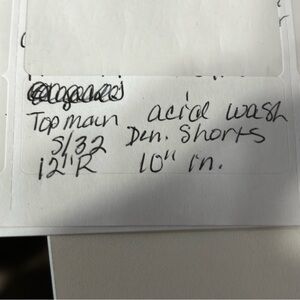 Topman acid wash
S/32 Den. Shorts
12"R 10" in.